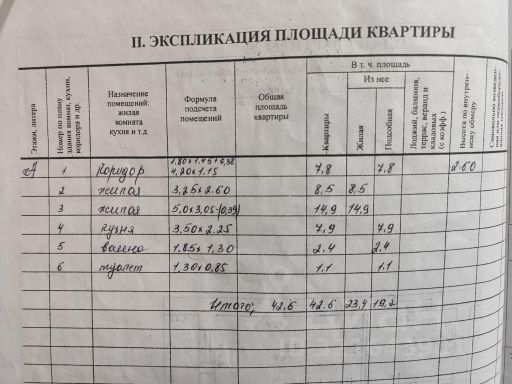 II. ЭКСПЛИКАЦИЯ ПЛОЩАДИ КВАРТИРЫ
Этажи, литера
Номер по плану здания комнат, кухни, коридора и др.
Назначение помещений: жилая комната кухня и т.д.
Формула подсчета помещений
Общая площадь квартиры
В т. ч. площадь
Квартиры
Из нее
Жилая
Подсобная
Лоджий, балконов, террас, веранд и кладовых (с коэфф.)
Высота по внутреннему обмеру
А 1 коридор 1.80x1.45+0.38 4,20x1.15 7,8 7.8 2.60
2 жилая 3,25x2.60 8,5 8,5
3 жилая 5,0x3,05-(0,39) 14,9 14,9
4 кухня 3,50x2.25 7,9 7,9
5 ванная 1.85x1,30 2.4 2.4
6 туалет 1,30x0,85 1.1 1.1
Итого: 42.6 42.6 23,4 19,2